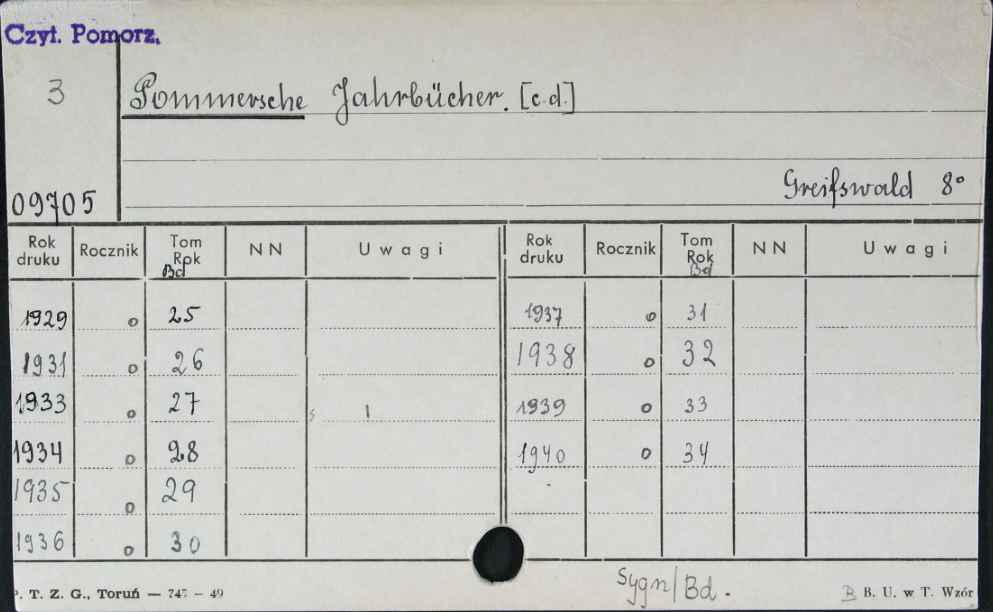 Czyt. Pomorz.
3
Pommersche Jahrbücher. [c.d.]
Greifswald 8°
09705
Rok druku Rocznik Tom Rok Bd NN Uwagi Rok druku Rocznik Tom Rok Bd NN Uwagi
1929 o 25 1937 o 31
1931 o 26 1938 o 32
1933 o 27 1939 o 33
1934 o 28 1940 o 34
1935 o 29
1936 o 30
Sygn/Bd.
. T. Z. G., Toruń — 747 — 49 B B. U. w T. Wzór